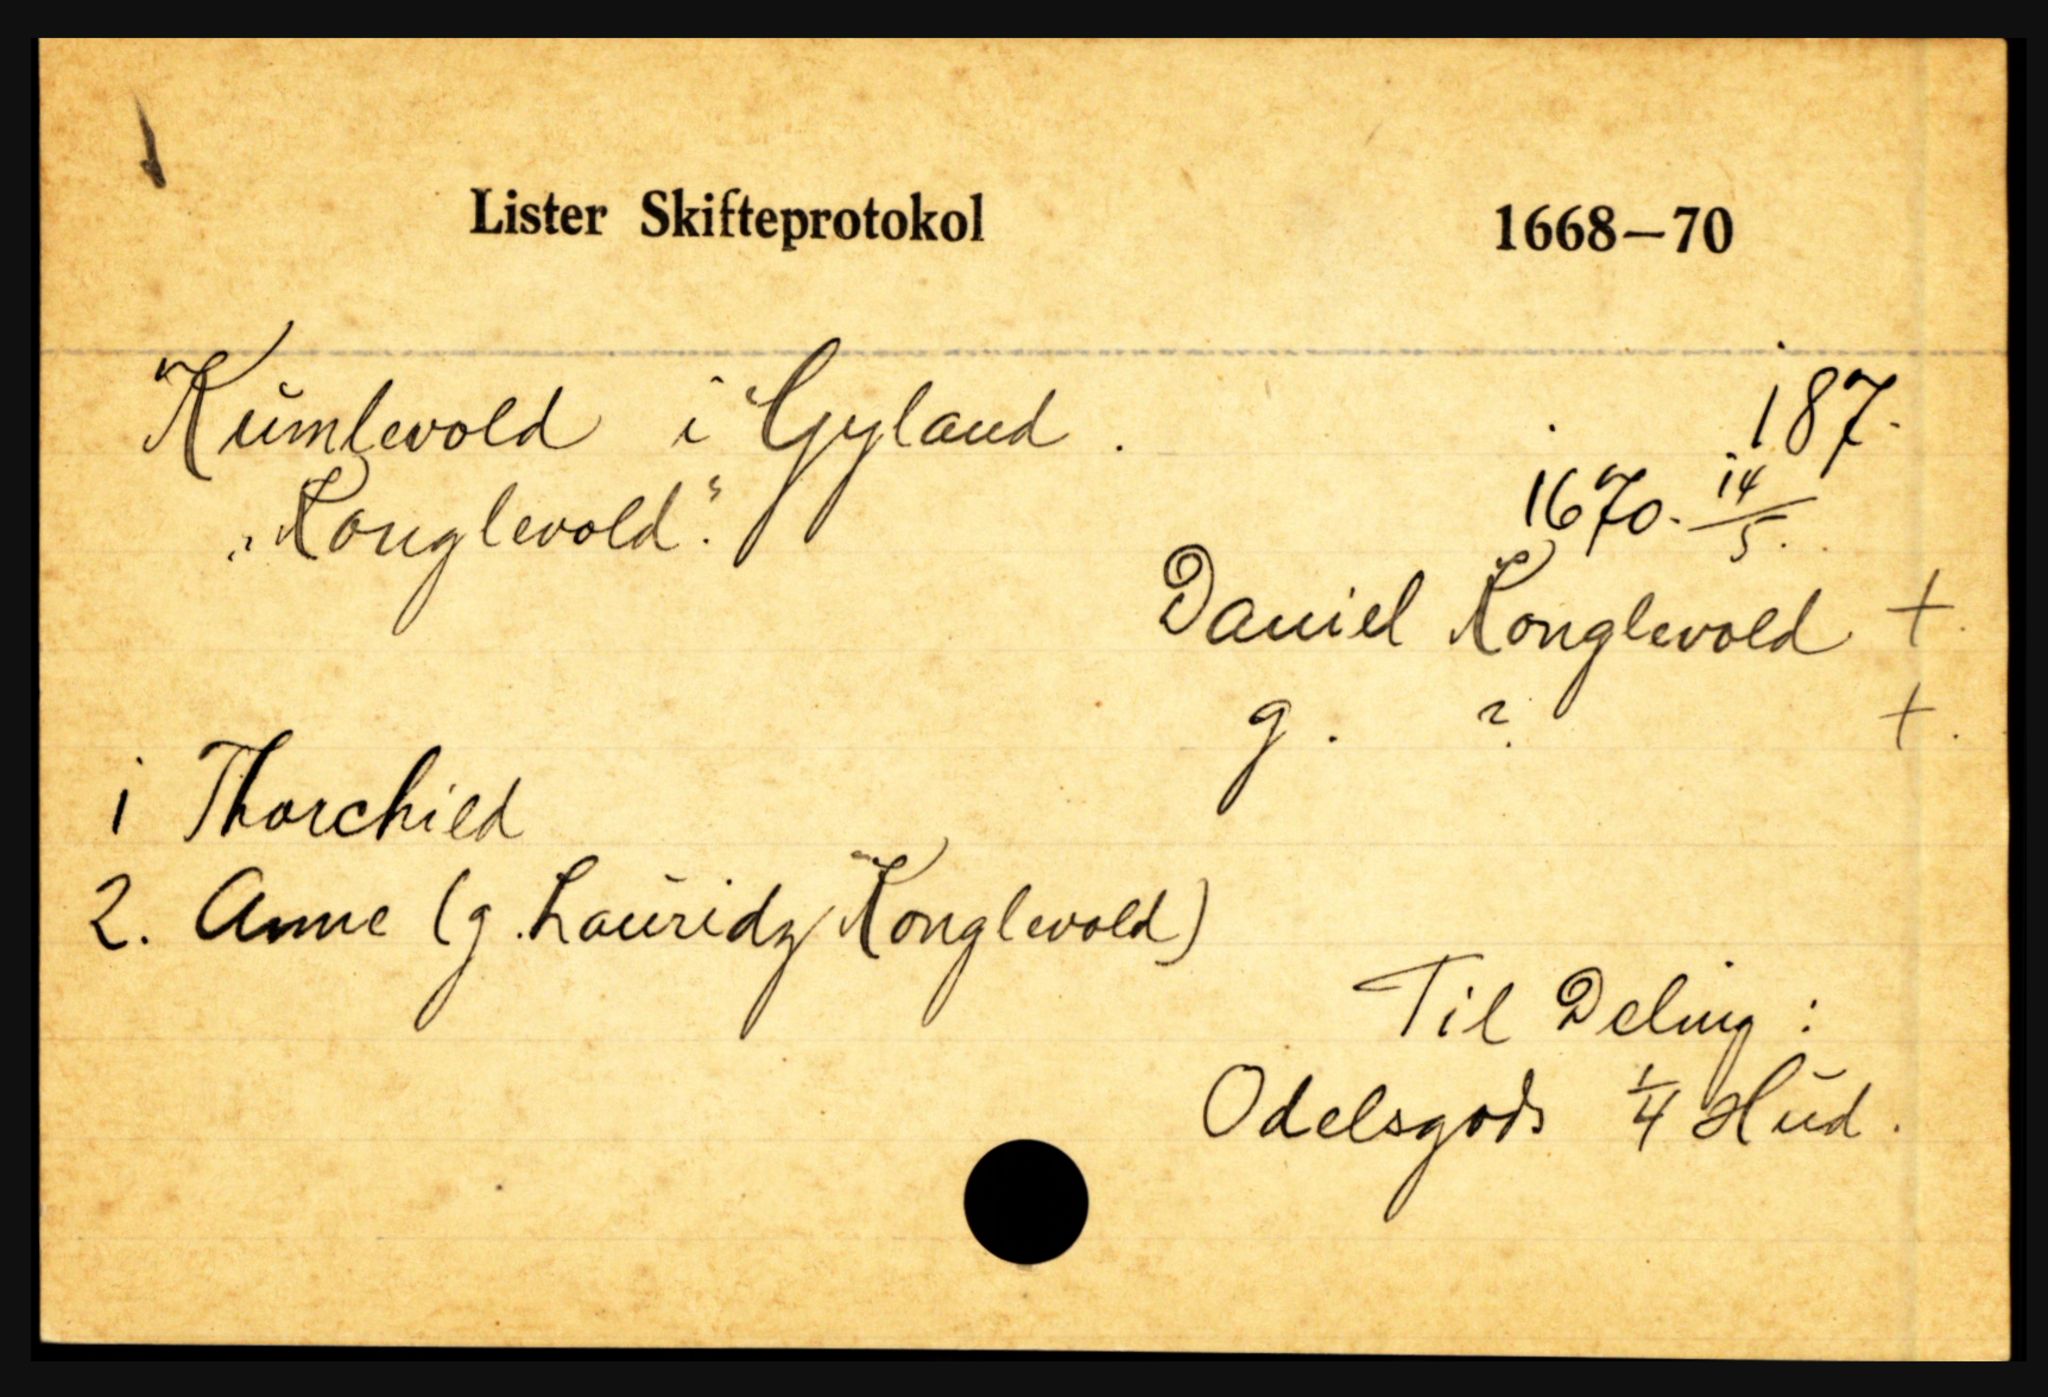 Lister Skifteprotokol 1668—70
Kumlevold i Gyland. 187.
„Konglevold“. 1670. 14/5.
Daniel Konglevold +.
g. ? +.
1 Thorchild
2. Anne (g. Lauridz Konglevold)
Til Deling:
Odelsgods 1/4 Hud.